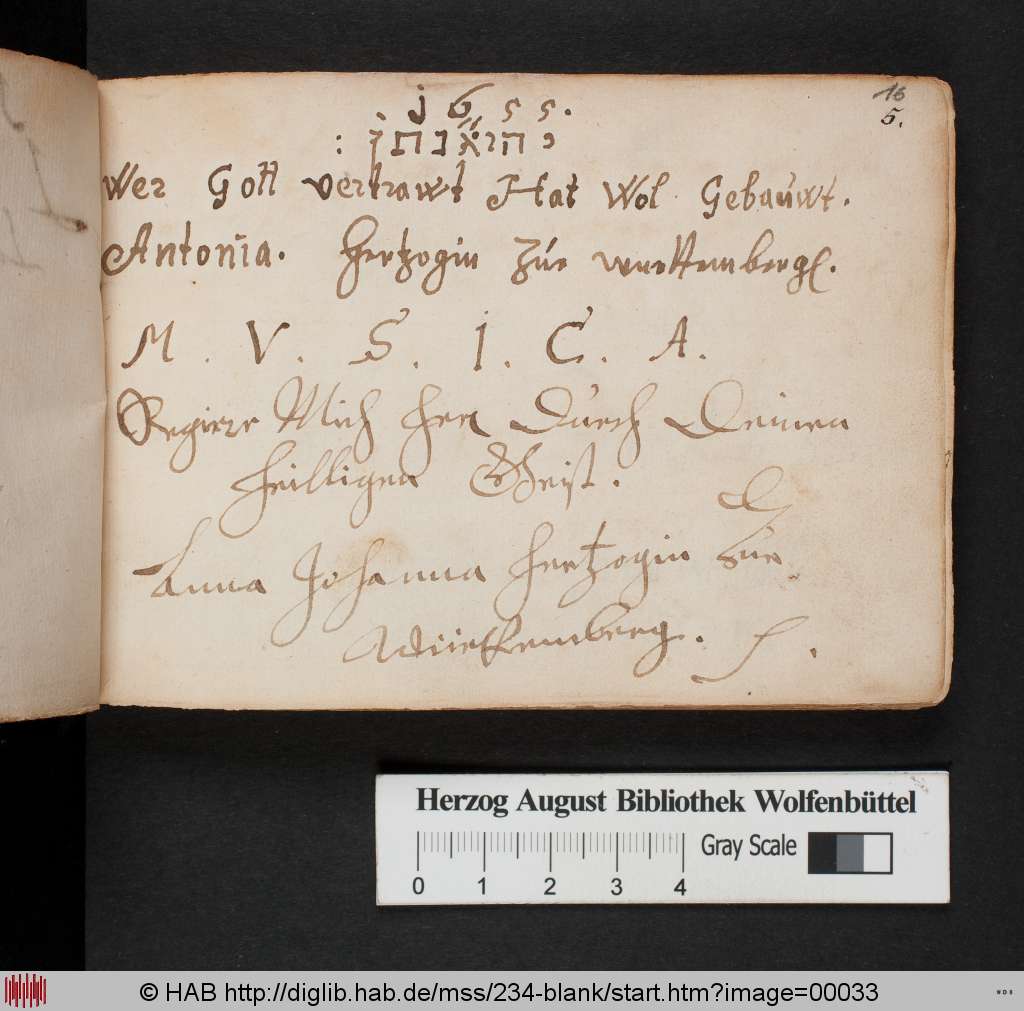 16
5.
1655.
כ הוא נתן :
Wer Gott vertrawt Hat Wol Gebauwt.
Antonia. Hertzogin Zúr wurttemberg.
M. V. S. I. C. A.
Regirer Mich Herr Durch Deinen
Heilligen Gheist.
Anna Johanna Hertzogin Zue
Württemberg.
Herzog August Bibliothek Wolfenbüttel
Gray Scale
0 1 2 3 4
© HAB http://diglib.hab.de/mss/234-blank/start.htm?image=00033